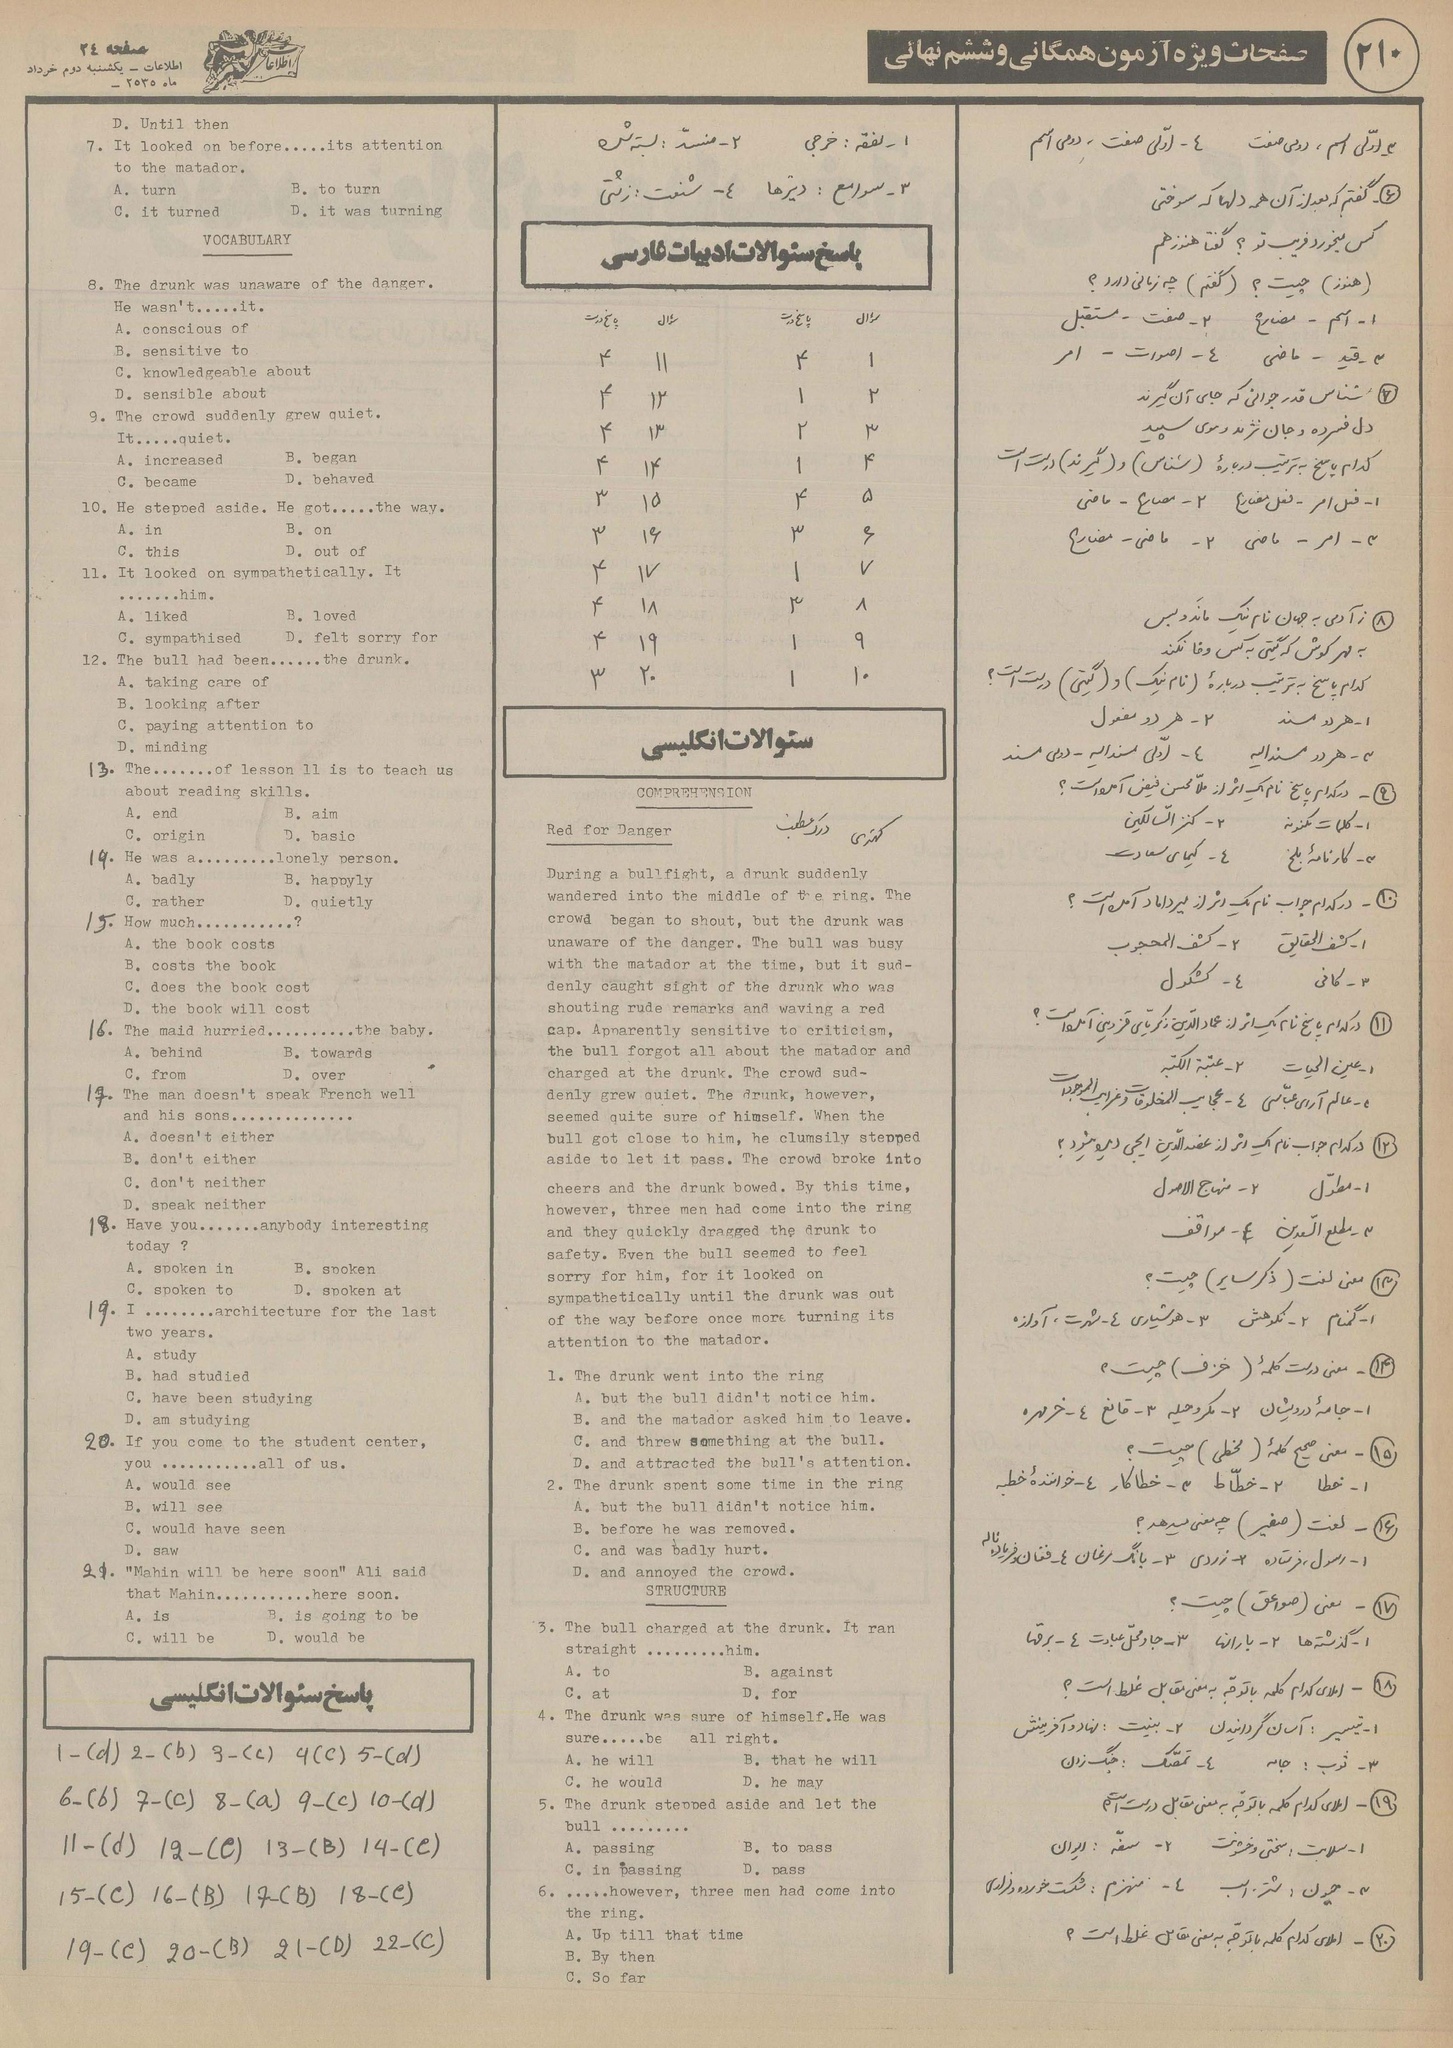 ۲۱۰
صفحات ویژه آزمون همگانی و ششم نهائی
صفحه ۲۴
اطلاعات – یکشنبه دوم خرداد
ماه ۲۵۳۵ –
۳- اوّلی اسم ، دومی صفت ۴- اوّلی صفت ، دومی اسم
۶- گفتم که بعد از آن همه دلها که سوختی
کس میخورد فریب تو ؟ گفتا هنوز هم
(هنوز) چیست ؟ (گفتم) چه زمانی دارد ؟
۱- اسم – مضارع ۲- صفت – مستقبل
۳- قید – ماضی ۴- اصوات – امر
۷ شناس قدر جوانی که جای آن گیرند
دل فسرده و جان نژند و موی سپید
کدام پاسخ به ترتیب دربارهٔ (شناس) و (گیرند) درست است
۱- فعل امر – فعل مضارع ۲- مضارع – ماضی
۳- امر – ماضی ۲- ماضی – مضارع
۸ ز آدمی به جهان نام نیک ماند و بس
به مهر کوش که گیتی به کس وفا نکند
کدام پاسخ به ترتیب دربارهٔ (نام نیک) و (گیتی) درست است ؟
۱- هر دو مسند ۲- هر دو مفعول
۳- هر دو مسندالیه ۴- اوّلی مسندالیه – دومی مسند
۹- در کدام پاسخ نام یک اثر از ملّا محسن فیض آمده است ؟
۱- کلمات مکنونه ۲- کنز السالکین
۳- کارنامهٔ بلخ ۴- کیمیای سعادت
۱۰- در کدام جواب نام یک اثر از میرداماد آمده است ؟
۱- کشف الحقایق ۲- کشف المحجوب
۳- کافی ۴- کشکول
۱۱ در کدام پاسخ نام یک اثر از عماد الدّین زکریّای قزوینی آمده است ؟
۱- عین الحیات ۲- عتبة الکتبه
۳- عالم آرای عبّاسی ۴- عجایب المخلوقات و غرایب الموجودات
۱۲ در کدام جواب نام یک اثر از عضد الدّین ایجی دیده میشود ؟
۱- مطوّل ۲- منهاج الاصول
۳- مطلع السّعدین ۴- مواقف
۱۳ معنی لغت (ذکر سایر) چیست ؟
۱- گمنام ۲- نکوهش ۳- هوشیاری ۴- شهرت ، آوازه
۱۴- معنی درست کلمهٔ (خزف) چیست ؟
۱- جامهٔ درویشان ۲- مکر و حیله ۳- قانع ۴- خرمهره
۱۵- معنی صحیح کلمهٔ (مخطی) چیست ؟
۱- خطا ۲- خطّاط ۳- خطاکار ۴- خوانندهٔ خطبه
۱۶- لغت (صفیر) چه معنی میدهد ؟
۱- رسول ، فرستاده ۲- زردی ۳- بانگ مرغان ۴- فغان و فریاد و ناله
۱۷- معنی (صواعق) چیست ؟
۱- گذشته ها ۲- بارانها ۳- جا و محلّ عبادت ۴- برقها
۱۸- املای کدام کلمه با توجّه به معنی مقابل غلط است ؟
۱- تیسیر : آسان گردانیدن ۲- بنیت : نهاد و آفرینش
۳- ثوب : جامه ۴- تمسّک : چنگ زدن
۱۹- املای کدام کلمه با توجّه به معنی مقابل درست است
۱- سلابت : سختی و خشونت ۲- سفّه : ایوان
۴- منهزم : شکست خورده و فراری
۲۰- املای کدام کلمه با توجّه به معنی مقابل غلط است ؟
۱- نفقه : خرجی ۲- منسدّ : بسته شده
۳- سوامع : دیرها ۴- شنعت : زشتی
پاسخ سئوالات ادبیات فارسی
سؤال پاسخ درست سؤال پاسخ درست
۱ ۴ ۱۱ ۴
۲ ۱ ۱۲ ۴
۳ ۲ ۱۳ ۴
۴ ۱ ۱۴ ۴
۵ ۴ ۱۵ ۳
۶ ۳ ۱۶ ۳
۷ ۱ ۱۷ ۴
۸ ۳ ۱۸ ۴
۹ ۱ ۱۹ ۴
۱۰ ۱ ۲۰ ۳
سئوالات انگلیسی
COMPREHENSION
Red for Danger درک مطلب
During a bullfight, a drunk suddenly
wandered into the middle of the ring. The
crowd began to shout, but the drunk was
unaware of the danger. The bull was busy
with the matador at the time, but it sud-
denly caught sight of the drunk who was
shouting rude remarks and waving a red
cap. Apparently sensitive to criticism,
the bull forgot all about the matador and
charged at the drunk. The crowd sud-
denly grew quiet. The drunk, however,
seemed quite sure of himself. When the
bull got close to him, he clumsily stepped
aside to let it pass. The crowd broke into
cheers and the drunk bowed. By this time,
however, three men had come into the ring
and they quickly dragged the drunk to
safety. Even the bull seemed to feel
sorry for him, for it looked on
sympathetically until the drunk was out
of the way before once more turning its
attention to the matador.
1. The drunk went into the ring
A. but the bull didn't notice him.
B. and the matador asked him to leave.
C. and threw something at the bull.
D. and attracted the bull's attention.
2. The drunk spent some time in the ring
A. but the bull didn't notice him.
B. before he was removed.
C. and was badly hurt.
D. and annoyed the crowd.
STRUCTURE
3. The bull charged at the drunk. It ran
straight .........him.
A. to B. against
C. at D. for
4. The drunk was sure of himself.He was
sure.....be all right.
A. he will B. that he will
C. he would D. he may
5. The drunk stepped aside and let the
bull .........
A. passing B. to pass
C. in passing D. pass
6. .....however, three men had come into
the ring.
A. Up till that time
B. By then
C. So far
D. Until then
7. It looked on before.....its attention
to the matador.
A. turn B. to turn
C. it turned D. it was turning
VOCABULARY
8. The drunk was unaware of the danger.
He wasn't.....it.
A. conscious of
B. sensitive to
C. knowledgeable about
D. sensible about
9. The crowd suddenly grew quiet.
It.....quiet.
A. increased B. began
C. became D. behaved
10. He stepped aside. He got.....the way.
A. in B. on
C. this D. out of
11. It looked on sympathetically. It
.......him.
A. liked B. loved
C. sympathised D. felt sorry for
12. The bull had been......the drunk.
A. taking care of
B. looking after
C. paying attention to
D. minding
13. The.......of lesson 11 is to teach us
about reading skills.
A. end B. aim
C. origin D. basic
14. He was a.........lonely person.
A. badly B. happyly
C. rather D. quietly
15. How much...........?
A. the book costs
B. costs the book
C. does the book cost
D. the book will cost
16. The maid hurried..........the baby.
A. behind B. towards
C. from D. over
17. The man doesn't speak French well
and his sons..............
A. doesn't either
B. don't either
C. don't neither
D. speak neither
18. Have you.......anybody interesting
today ?
A. spoken in B. spoken
C. spoken to D. spoken at
19. I ........architecture for the last
two years.
A. study
B. had studied
C. have been studying
D. am studying
20. If you come to the student center,
you ...........all of us.
A. would see
B. will see
C. would have seen
D. saw
21. "Mahin will be here soon" Ali said
that Mahin...........here soon.
A. is B. is going to be
C. will be D. would be
پاسخ سئوالات انگلیسی
1-(d) 2-(b) 3-(c) 4(c) 5-(d)
6-(b) 7-(c) 8-(a) 9-(c) 10-(d)
11-(d) 12-(C) 13-(B) 14-(C)
15-(C) 16-(B) 17-(B) 18-(C)
19-(C) 20-(B) 21-(D) 22-(C)